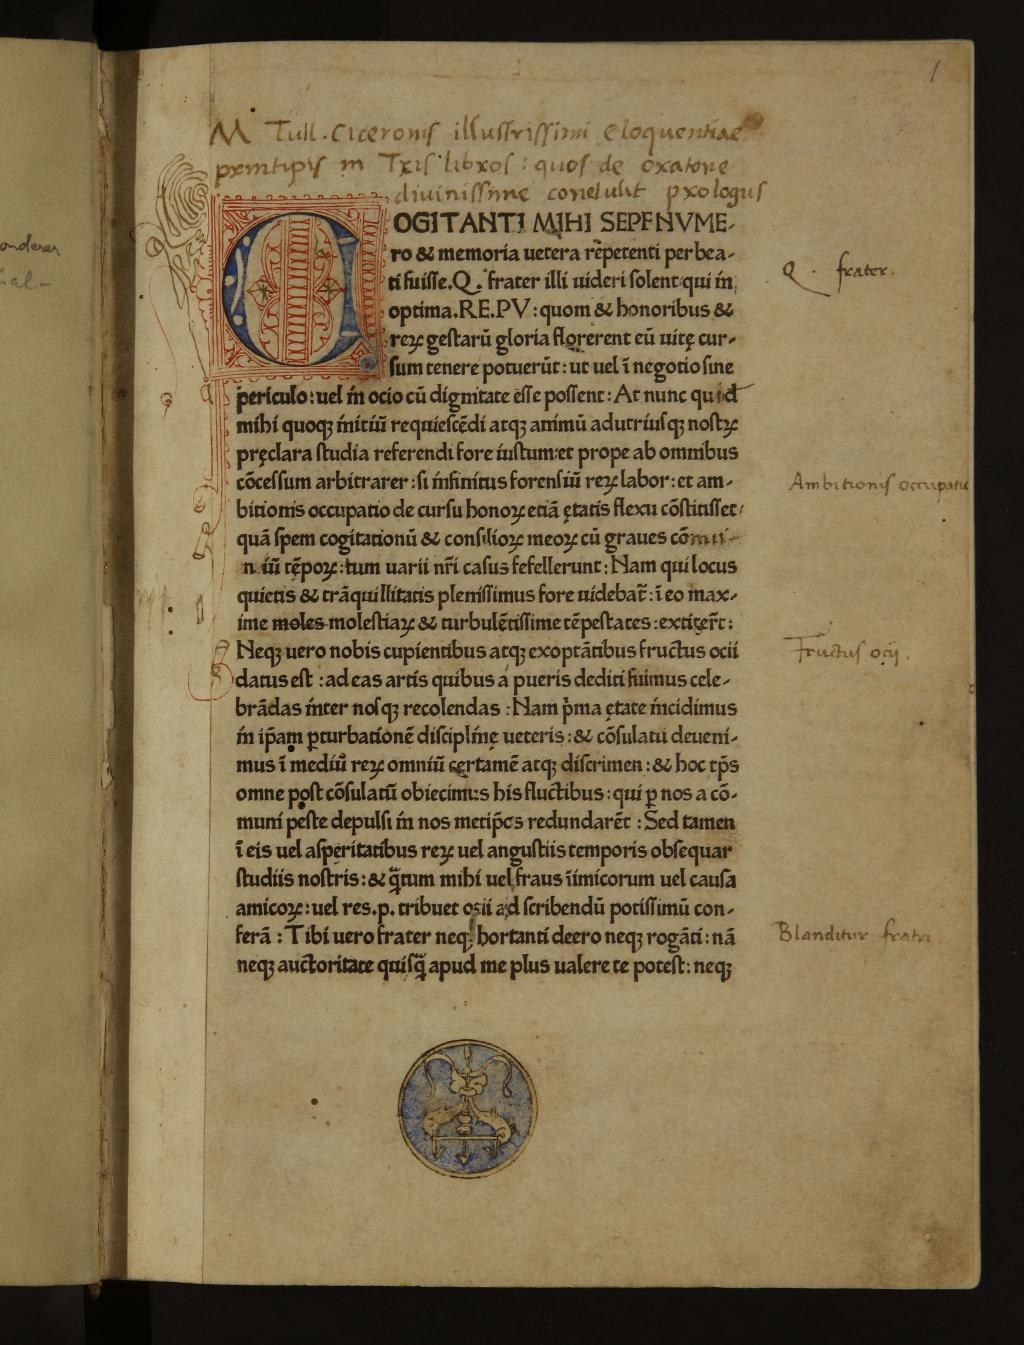 1
M Tull. Ciceronis illustrissimi eloquentiae
principis in Tris libros: quos de oratore
diuinissime conclusit prologus
COGITANTI MIHI SEPENVME-
ro & memoria uetera repetenti perbea-
ti fuisse.Q. frater illi uideri solent qui in
optima.RE.PV: quom & honoribus &
reꝝ gestarū gloria florerent eū uitę cur-
sum tenere potuerūt: ut uel ī negotio sine
periculo: uel in ocio cū dignitate esse possent: At nunc quid
mihi quoqꝫ initiū requiescēdi atqꝫ animū adutriusqꝫ nostꝝ
pręclara studia referendi fore iustum: et prope ab omnibus
cōcessum arbitrarer: si infinitus forensiū reꝝ labor: et am-
bitionis occupatio de cursu honoꝝ etiā ętatis flexu cōstitisset
quā spem cogitationū & consilioꝝ meoꝝ cū graues cōmu-
niū tēpoꝝ: tum uarii nr̄i casus fefellerunt: Nam qui locus
quietis & trāquillitatis plenissimus fore uidebat̄: ī eo max-
ime moles molestiaꝝ & turbulētissime tēpestates: extiter̄t:
Neqꝫ uero nobis cupientibus atqꝫ exoptātibus fructus ocii
datus est: ad eas artis quibus a pueris dediti fuimus cele-
brādas inter nosqꝫ recolendas: Nam p̄ma ętate incidimus
in ip̄am ꝑturbationē disciplinę ueteris: & cōsulatu deueni-
mus ī mediū reꝝ omniū certamē atqꝫ discrimen: & hoc tp̄s
omne post cōsulatū obiecimus his fluctibus: qui ꝑ nos a cō-
muni peste depulsi in nos metip̄os redundarēt: Sed tamen
ī eis uel asperitatibus reꝝ uel angustiis temporis obsequar
studiis nostris: & q̄tum mihi uel fraus īimicorum uel causa
amicoꝝ: uel res.p. tribuet ocii ad scribendū potissimū con-
ferā: Tibi uero frater neqꝫ hortanti deero neqꝫ rogāti: nā
neqꝫ auctoritate quisq̄ apud me plus ualere te potest: neqꝫ
Q. frater.
Ambitionis occupatio
Fructus ocij.
Blanditur fratri